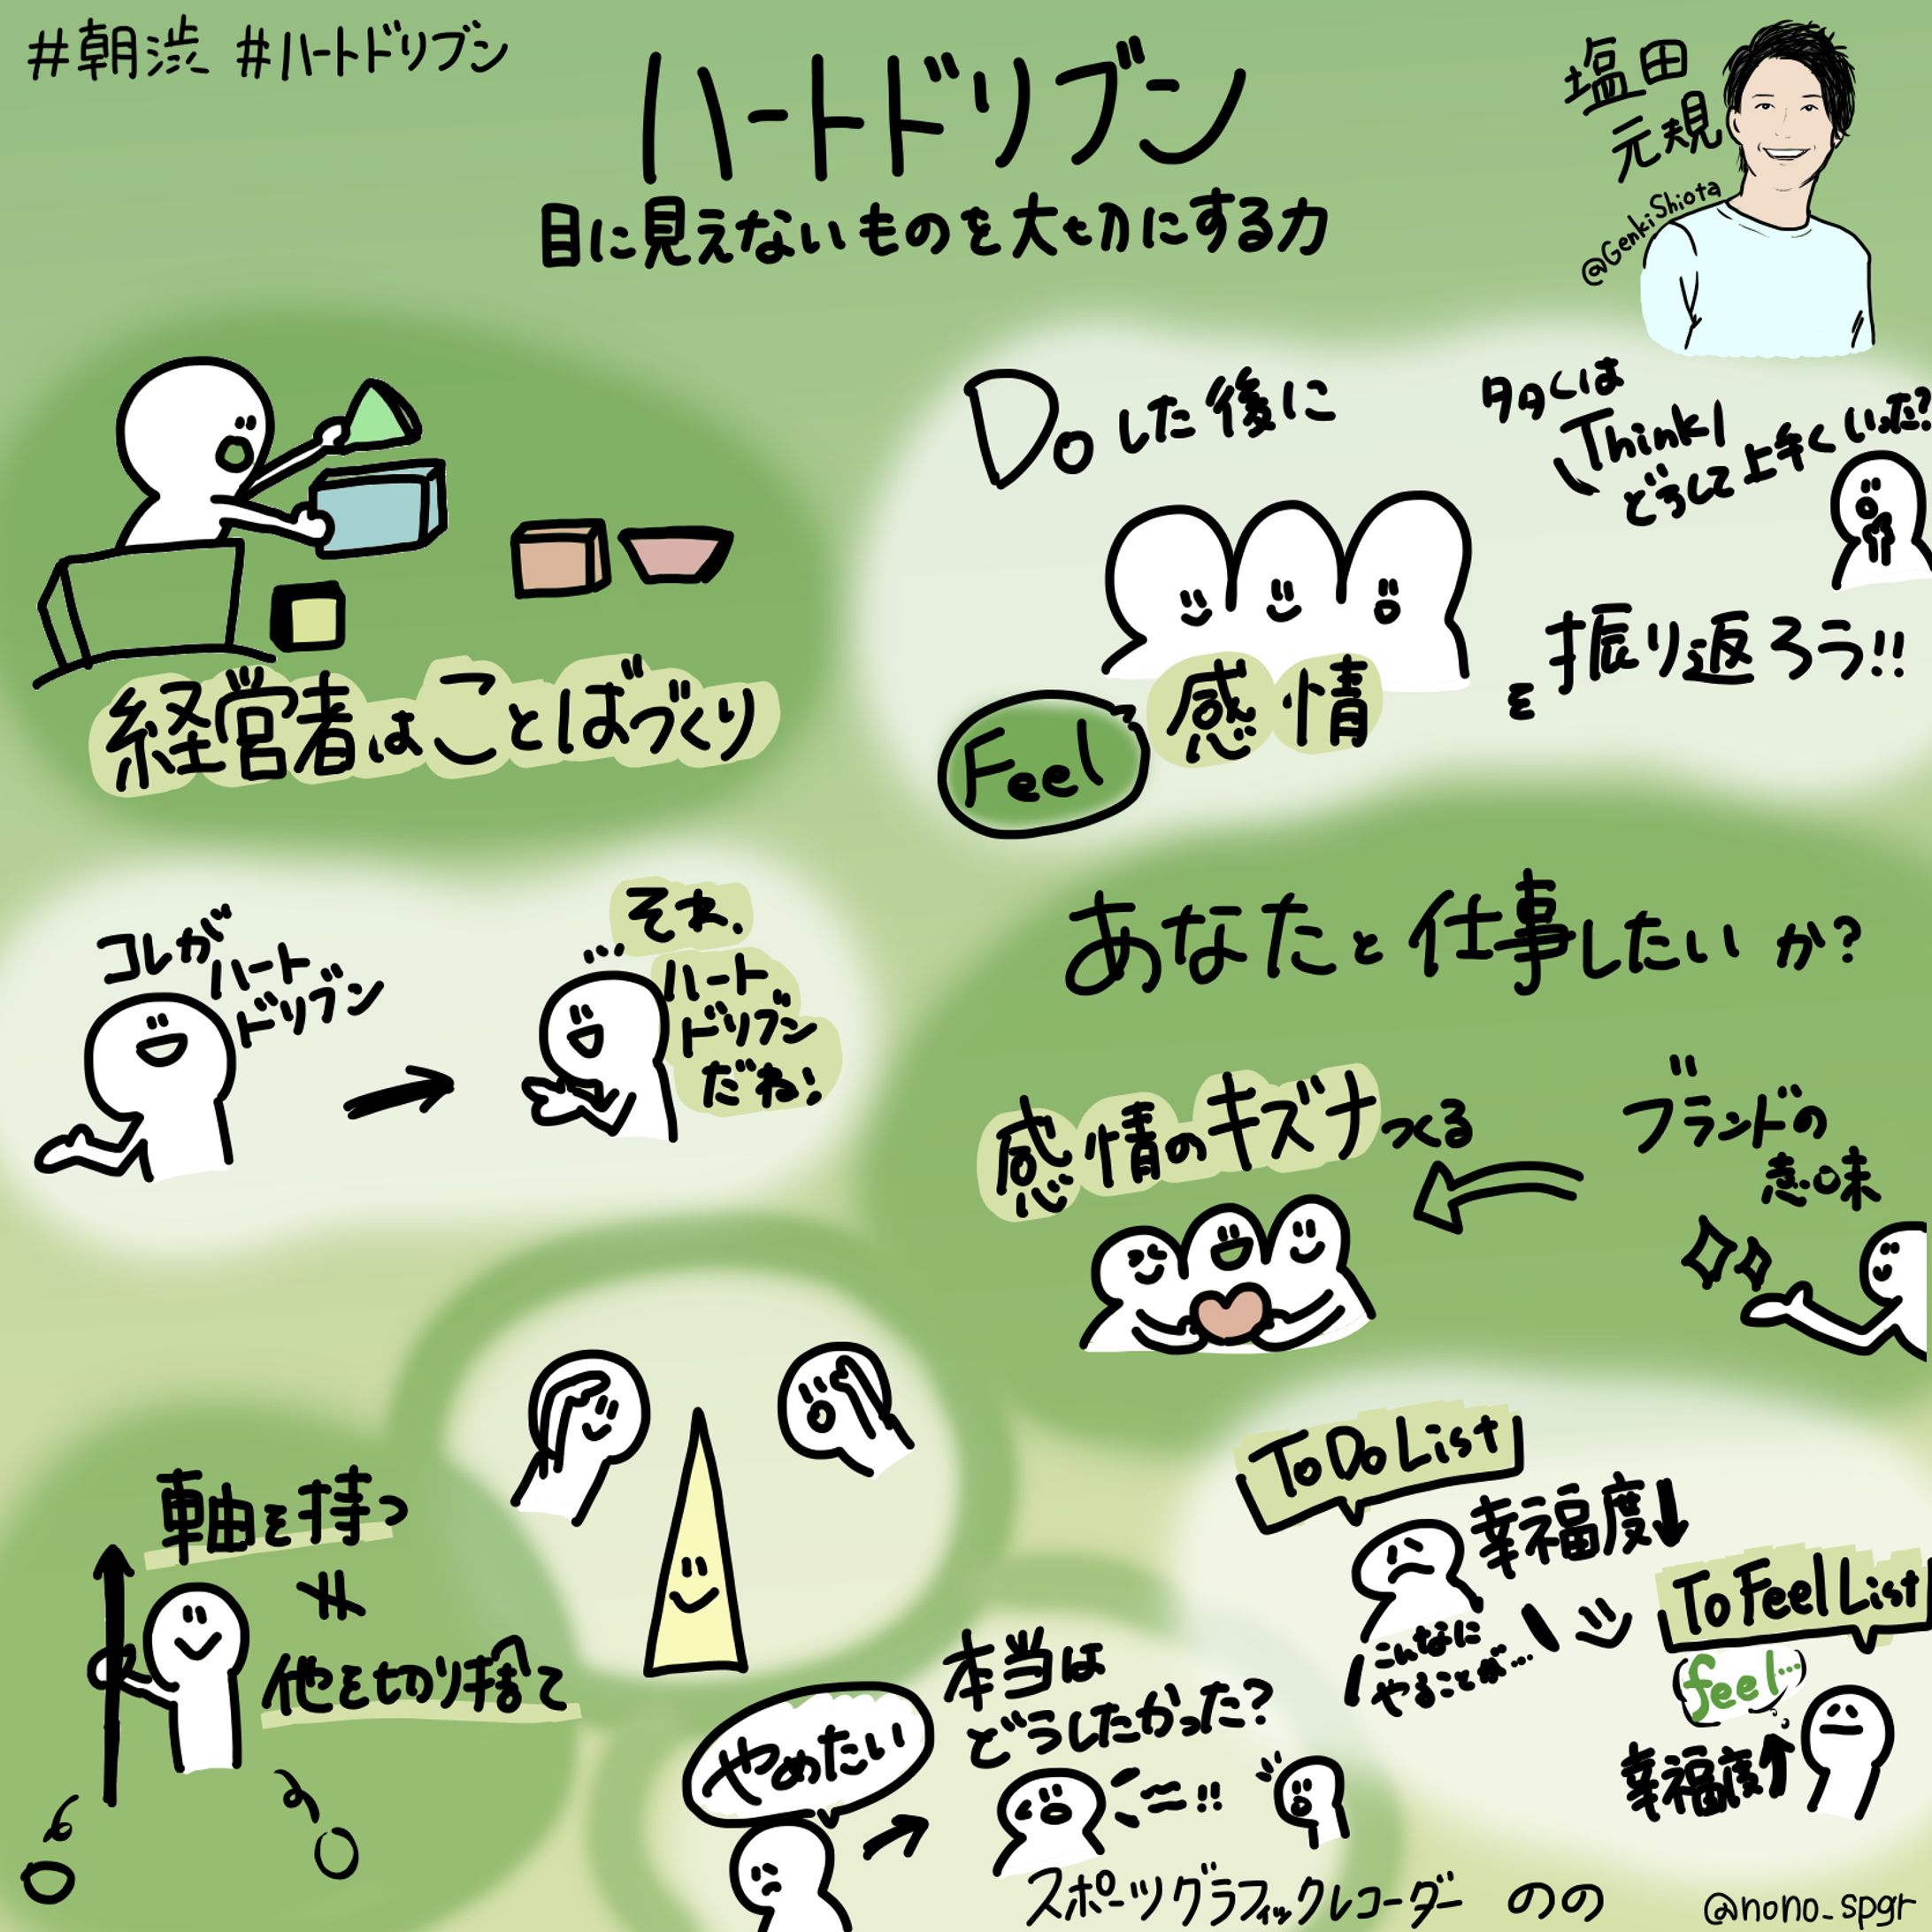 #朝渋 #ハートドリブン
ハートドリブン
目に見えないものを大切にする力
塩田
元規
@GenkiShiota
経営者はことばづくり
Doした後に
多くは
Think!
どうして上手くいった?
Feel
感情を振り返ろう!!
コレが
ハート
ドリブン
それ、
ハート
ドリブン
だね!
あなたと仕事したいか?
感情のキズナつくる
ブランドの
意味
軸を持つ
≠
他を切り捨て
やめたい
本当は
どうしたかった?
!!
ToDoList
幸福度↓
こんなに
やることが…
ToFeelList
feel…
幸福度↑
スポーツグラフィックレコーダー のの
@nono_spgr